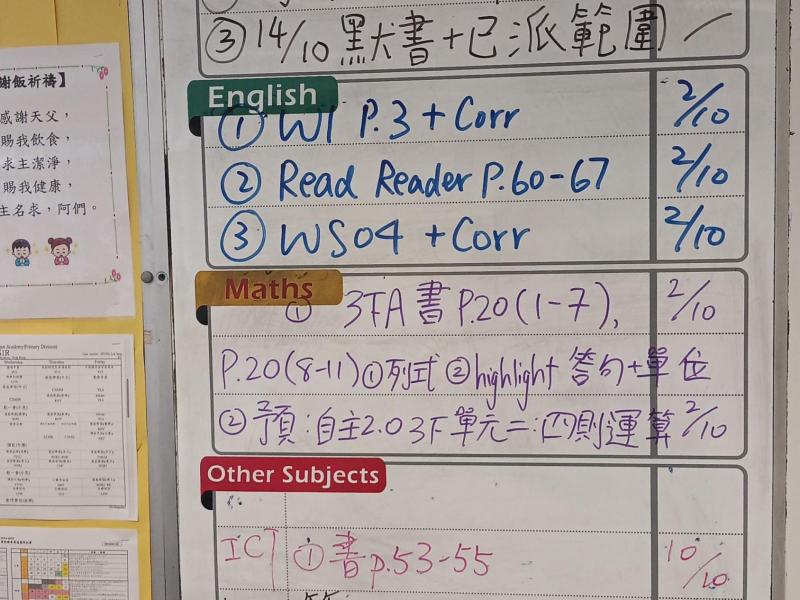 ③ 14/10 默書+已派範圍
English
① W1 P.3 + Corr 2/10
② Read Reader P.60-67 2/10
③ WS04 + Corr 2/10
Maths
① 3下A書 P.20(1-7), 2/10
P.20(8-11)①列式 ②highlight 答句+單位
② 預:自主2.0 3下單元二:四則運算 2/10
Other Subjects
ICT ①書p.53-55 10/10
謝飯祈禱】
感謝天父,
賜我飲食,
求主潔淨,
賜我健康,
主名求,阿們。
Wednesday Thursday Friday